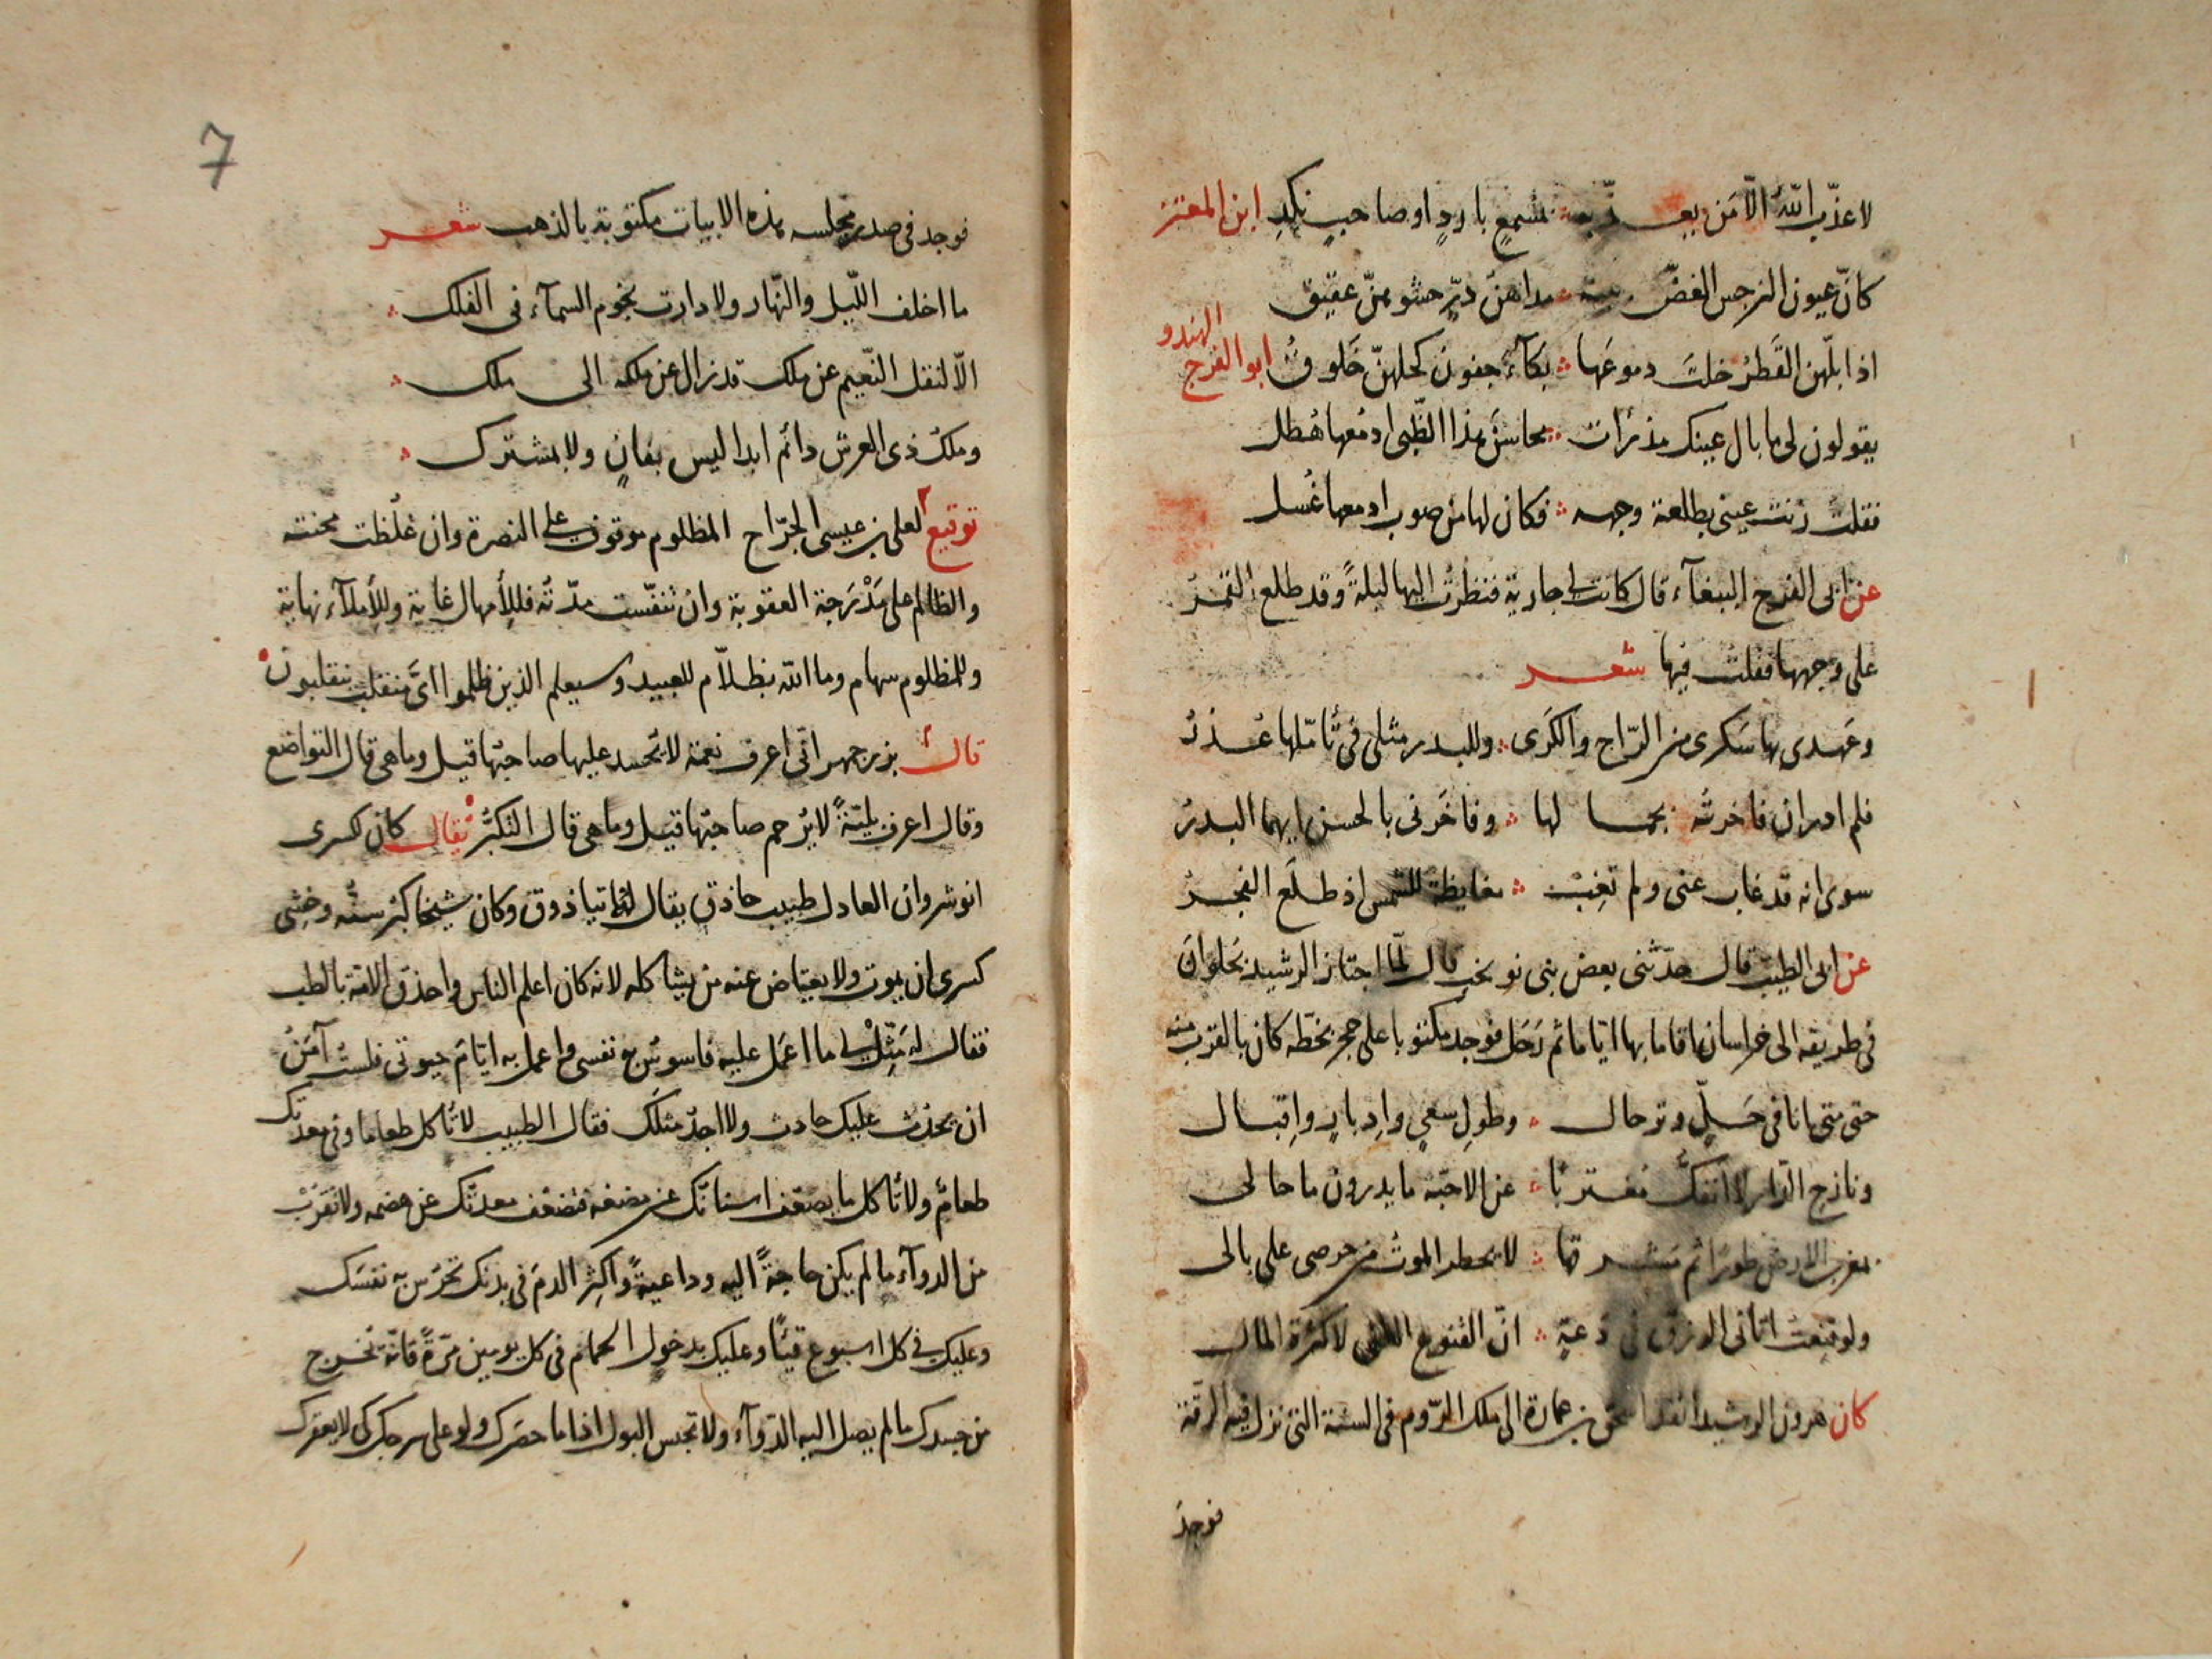 لا عذّب اللّه الّا من يعـــذّبه بمسمعٍ باردٍ او صاحبٍ نكدِ ابن المعتز
كانّ عيون النرجس الغضّ مداهن درّ حشوهنّ عقيق
الهندو
اذا بلّهن القَطرُ خلتَ دموعَها بكآءَ جفون كحلهنّ خَلوقُ ابو الفرج
يقولون لى ما بال عينك مذ رأت محاسن هذا الظّبى ادمُعها هُطل
فقلتُ زنت عينى بطلعة وجهه فكان لها من صوب ادمعها غُسل
عن ابى الفرج الببغآء قال كانت لى جارية فنظرتُ اليها ليلةً وقد طلع القمرُ
على وجهها فقلت فيها شعـــر
وعَهدى بها سَكرى من الرّاح والكَرَى وللبدر مثلى فى تأمّلها عُـذرُ
فلم ادر ان فاخرتُه بجمـــا لها وفاخَرنى بالحسن ايهما البدرُ
سوى انه قد غاب عنى ولم تغِبْ مغايظة للشمس اذ طلَع الفجـرُ
عن ابى الطيب قال حدّثنى بعض بنى نوبخت قال لمّا اجتاز الرشيد بحَلوان
فى طريقه الى خراسان فاقاما بها ايّاما ثم رَحَل فوجد مكتوبا على حجر بخطّه كان بالقرب منه
حتى متى انا فى حَـلٍّ وترحال وطولِ سعىٍ واِدبارٍ واِقبـال
ونازح الدّار لا انفكُّ مغتربًا عن الاحبّه ما يدرون ما حالى
بمغرب الارض طورًا ثم مشـرقها لا يخطر الموتُ من حرصى على بالى
ولو قنِعت اتانى الرزق فى دَعةٍ انّ القنوع الغنى لا كثرة المال
كان هرون الرشيد انفذ اسحق بن عمارة الى ملك الرّوم فى السنة التى نزل فيه الرقّة
فوجدَ
7
فوجد فى صدر مجلسه هذه الابيات مكتوبة بالذهب شعـــر
ما اخلف اللّيل والنّهار ولا دارت نجوم السمآء فى الفلك
الّا لنقل النّعيم عن ملك قد زال عن ملكه الى ملك
وملك ذى العرش دائم ابدا ليس بفانٍ ولا بمشترك
توقيع لعلى بن عيسى الجرّاح المظلوم موقوف على النصرة وان غلُظت محنته
والظالم على مَدْرَجة العقوبة وان تنفّست مدّته فللأمهال غاية وللأملآء نهاية
وللمظلوم سهام وما اللّه بظلاّم للعبيد وسيعلم الذين ظلموا اىَّ منقلب ينقلبون
قال بزرجمهر انّى اعرف نعمة لا يُحسد عليها صاحبُها قيل وما هى قال التواضع
وقال اعرف بليّةً لا يُرحم صاحبُها قيل وما هى قال التكبُّر يقال كان كسرى
انوشروان العادل طبيب حاذق يقال له تياذوق وكان شيخا كبُر سنّه وخشى
كسرى ان يموت ولا يعتاض عنه من يشاكله لانه كان اعلم الناس واحذق الامّة بالطب
فقال له مَثِّل لى ما اعمَل عليه فاسوس به نفسى واعمل به ايّامَ حيوتى فلستُ آمَنُ
ان يَحدُث عليك حادث ولا اجدُ مثلَك فقال الطبيب لا تأكل طعاما وفى معدتك
طعامٌ ولا تأكل ما يضعف اسنانك عن مضغه فتضعُف معدتك عن هضمه ولا تقرَبْ
من الدوآء ما لم يكن حاجةً اليه وداعيةً واكثِر الدمَ فى بدنك تحرُس به نفسَك
وعليك فى كل اسبوع قيئًا وعليك بدخول الحمام فى كل يومين مرّةً فانّه يُخرج
من جسدك ما لم يصل اليه الدّوآء ولا تحبس البول اذا ما حصَرك ولو على سرجك كى لا يعقرك